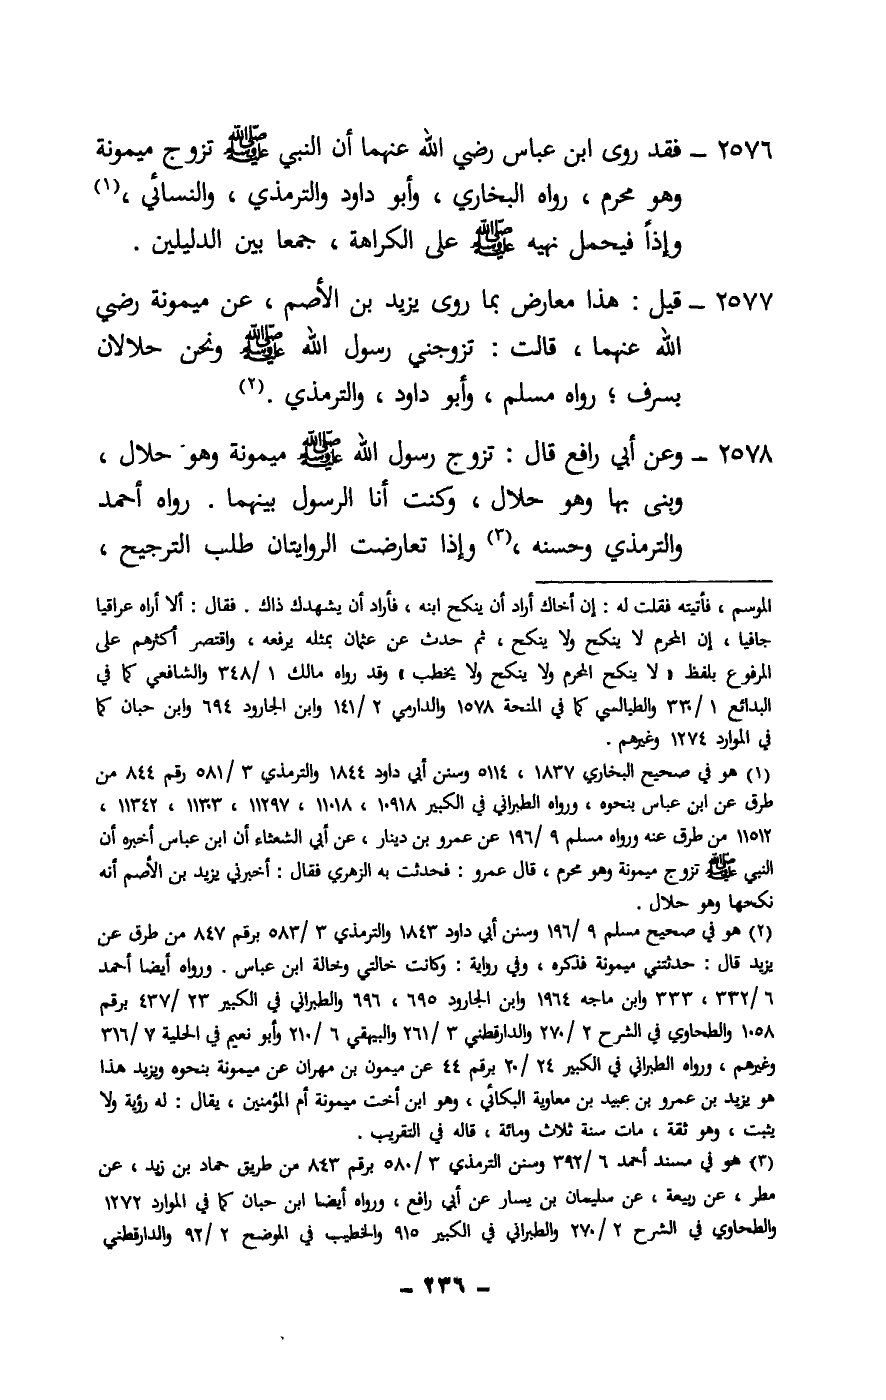 ٢٥٧٦ ـ فقد روى ابن عباس رضي الله عنهما أن النبي ﷺ تزوج ميمونة
وهو محرم ، رواه البخاري ، وأبو داود والترمذي ، والنسائي ،(١)
وإذاً فيحمل نهيه ﷺ على الكراهة ، جمعا بين الدليلين .
٢٥٧٧ ـ قيل : هذا معارض بما روى يزيد بن الأصم ، عن ميمونة رضي
الله عنهما ، قالت : تزوجني رسول الله ﷺ ونحن حلالان
بسرف ؛ رواه مسلم ، وأبو داود ، والترمذي .(٢)
٢٥٧٨ ـ وعن أبي رافع قال : تزوج رسول الله ﷺ ميمونة وهو حلال ،
وبنى بها وهو حلال ، وكنت أنا الرسول بينهما . رواه أحمد
والترمذي وحسنه ،(٣) وإذا تعارضت الروايتان طلب الترجيح ،
الموسم ، فأتيته فقلت له : إن أخاك أراد أن ينكح ابنه ، فأراد أن يشهدك ذاك . فقال : ألا أراه عراقيا
جافيا ، إن المحرم لا ينكح ولا ينكح ، ثم حدث عن عثمان بمثله يرفعه ، واقتصر أكثرهم على
المرفوع بلفظ « لا ينكح المحرم ولا ينكح ولا يخطب » وقد رواه مالك ١ /٣٤٨ والشافعي كما في
البدائع ١ /٣٣٠ والطيالسي كما في المنحة ١٥٧٨ والدارمي ٢ /١٤١ وابن الجارود ٦٩٤ وابن حبان كما
في الموارد ١٢٧٤ وغيرهم .
(١) هو في صحيح البخاري ١٨٣٧ ، ٥١١٤ وسنن أبي داود ١٨٤٤ والترمذي ٣ /٥٨١ رقم ٨٤٤ من
طرق عن ابن عباس بنحوه ، ورواه الطبراني في الكبير ١٠٩١٨ ، ١١٠١٨ ، ١١٢٩٧ ، ١١٣٠٣ ، ١١٣٤٢ ،
١١٥١٢ من طرق عنه ورواه مسلم ٩ /١٩٦ عن عمرو بن دينار ، عن أبي الشعثاء أن ابن عباس أخبره أن
النبي ﷺ تزوج ميمونة وهو محرم ، قال عمرو : فحدثت به الزهري فقال : أخبرني يزيد بن الأصم أنه
نكحها وهو حلال .
(٢) هو في صحيح مسلم ٩ /١٩٦ وسنن أبي داود ١٨٤٣ والترمذي ٣ /٥٨٣ برقم ٨٤٧ من طرق عن
يزيد قال : حدثتني ميمونة فذكره ، وفي رواية : وكانت خالتي وخالة ابن عباس . ورواه أيضا أحمد
٦ /٣٣٢ ، ٣٣٣ وابن ماجه ١٩٦٤ وابن الجارود ٦٩٥ ، ٦٩٦ والطبراني في الكبير ٢٣ /٤٣٧ برقم
١٠٥٨ والطحاوي في الشرح ٢ /٢٧٠ والدارقطني ٣ /٢٦١ والبيهقي ٦ /٢١٠ وأبو نعيم في الحلية ٧ /٣١٦
وغيرهم ، ورواه الطبراني في الكبير ٢٤ /٢٠ برقم ٤٤ عن ميمون بن مهران عن ميمونة بنحوه ويزيد هذا
هو يزيد بن عمرو بن عبيد بن معاوية البكائي ، وهو ابن أخت ميمونة أم المؤمنين ، يقال : له رؤية ولا
يثبت ، وهو ثقة ، مات سنة ثلاث ومائة ، قاله في التقريب .
(٣) هو في مسند أحمد ٦ /٣٩٢ وسنن الترمذي ٣ /٥٨٠ برقم ٨٤٣ من طريق حماد بن زيد ، عن
مطر ، عن ربيعة ، عن سليمان بن يسار عن أبي رافع ، ورواه أيضا ابن حبان كما في الموارد ١٢٧٢
والطحاوي في الشرح ٢ /٢٧٠ والطبراني في الكبير ٩١٥ والخطيب في الموضح ٢ /٩٢ والدارقطني
ـ ٢٣٦ ـ